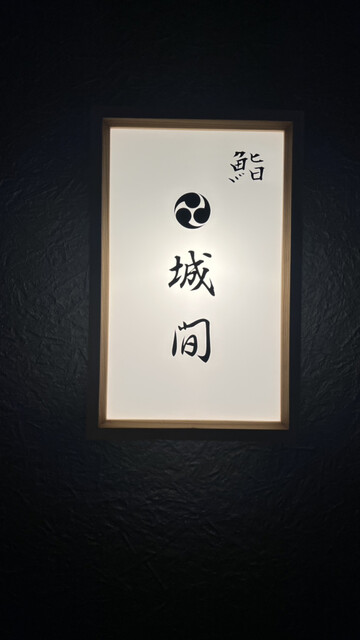 鮨
城間